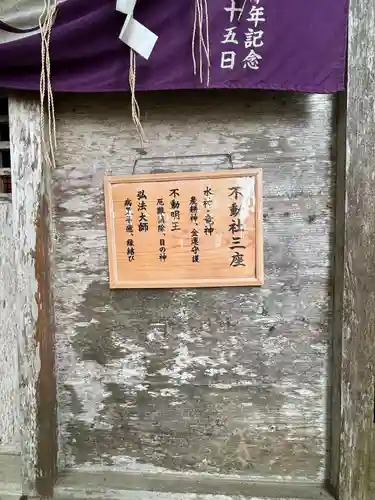 年記念
十五日
不動社三座
水神・竜神
農耕神、金運守護
不動明王
厄難消除、目の神
弘法大師
病気平癒、縁結び